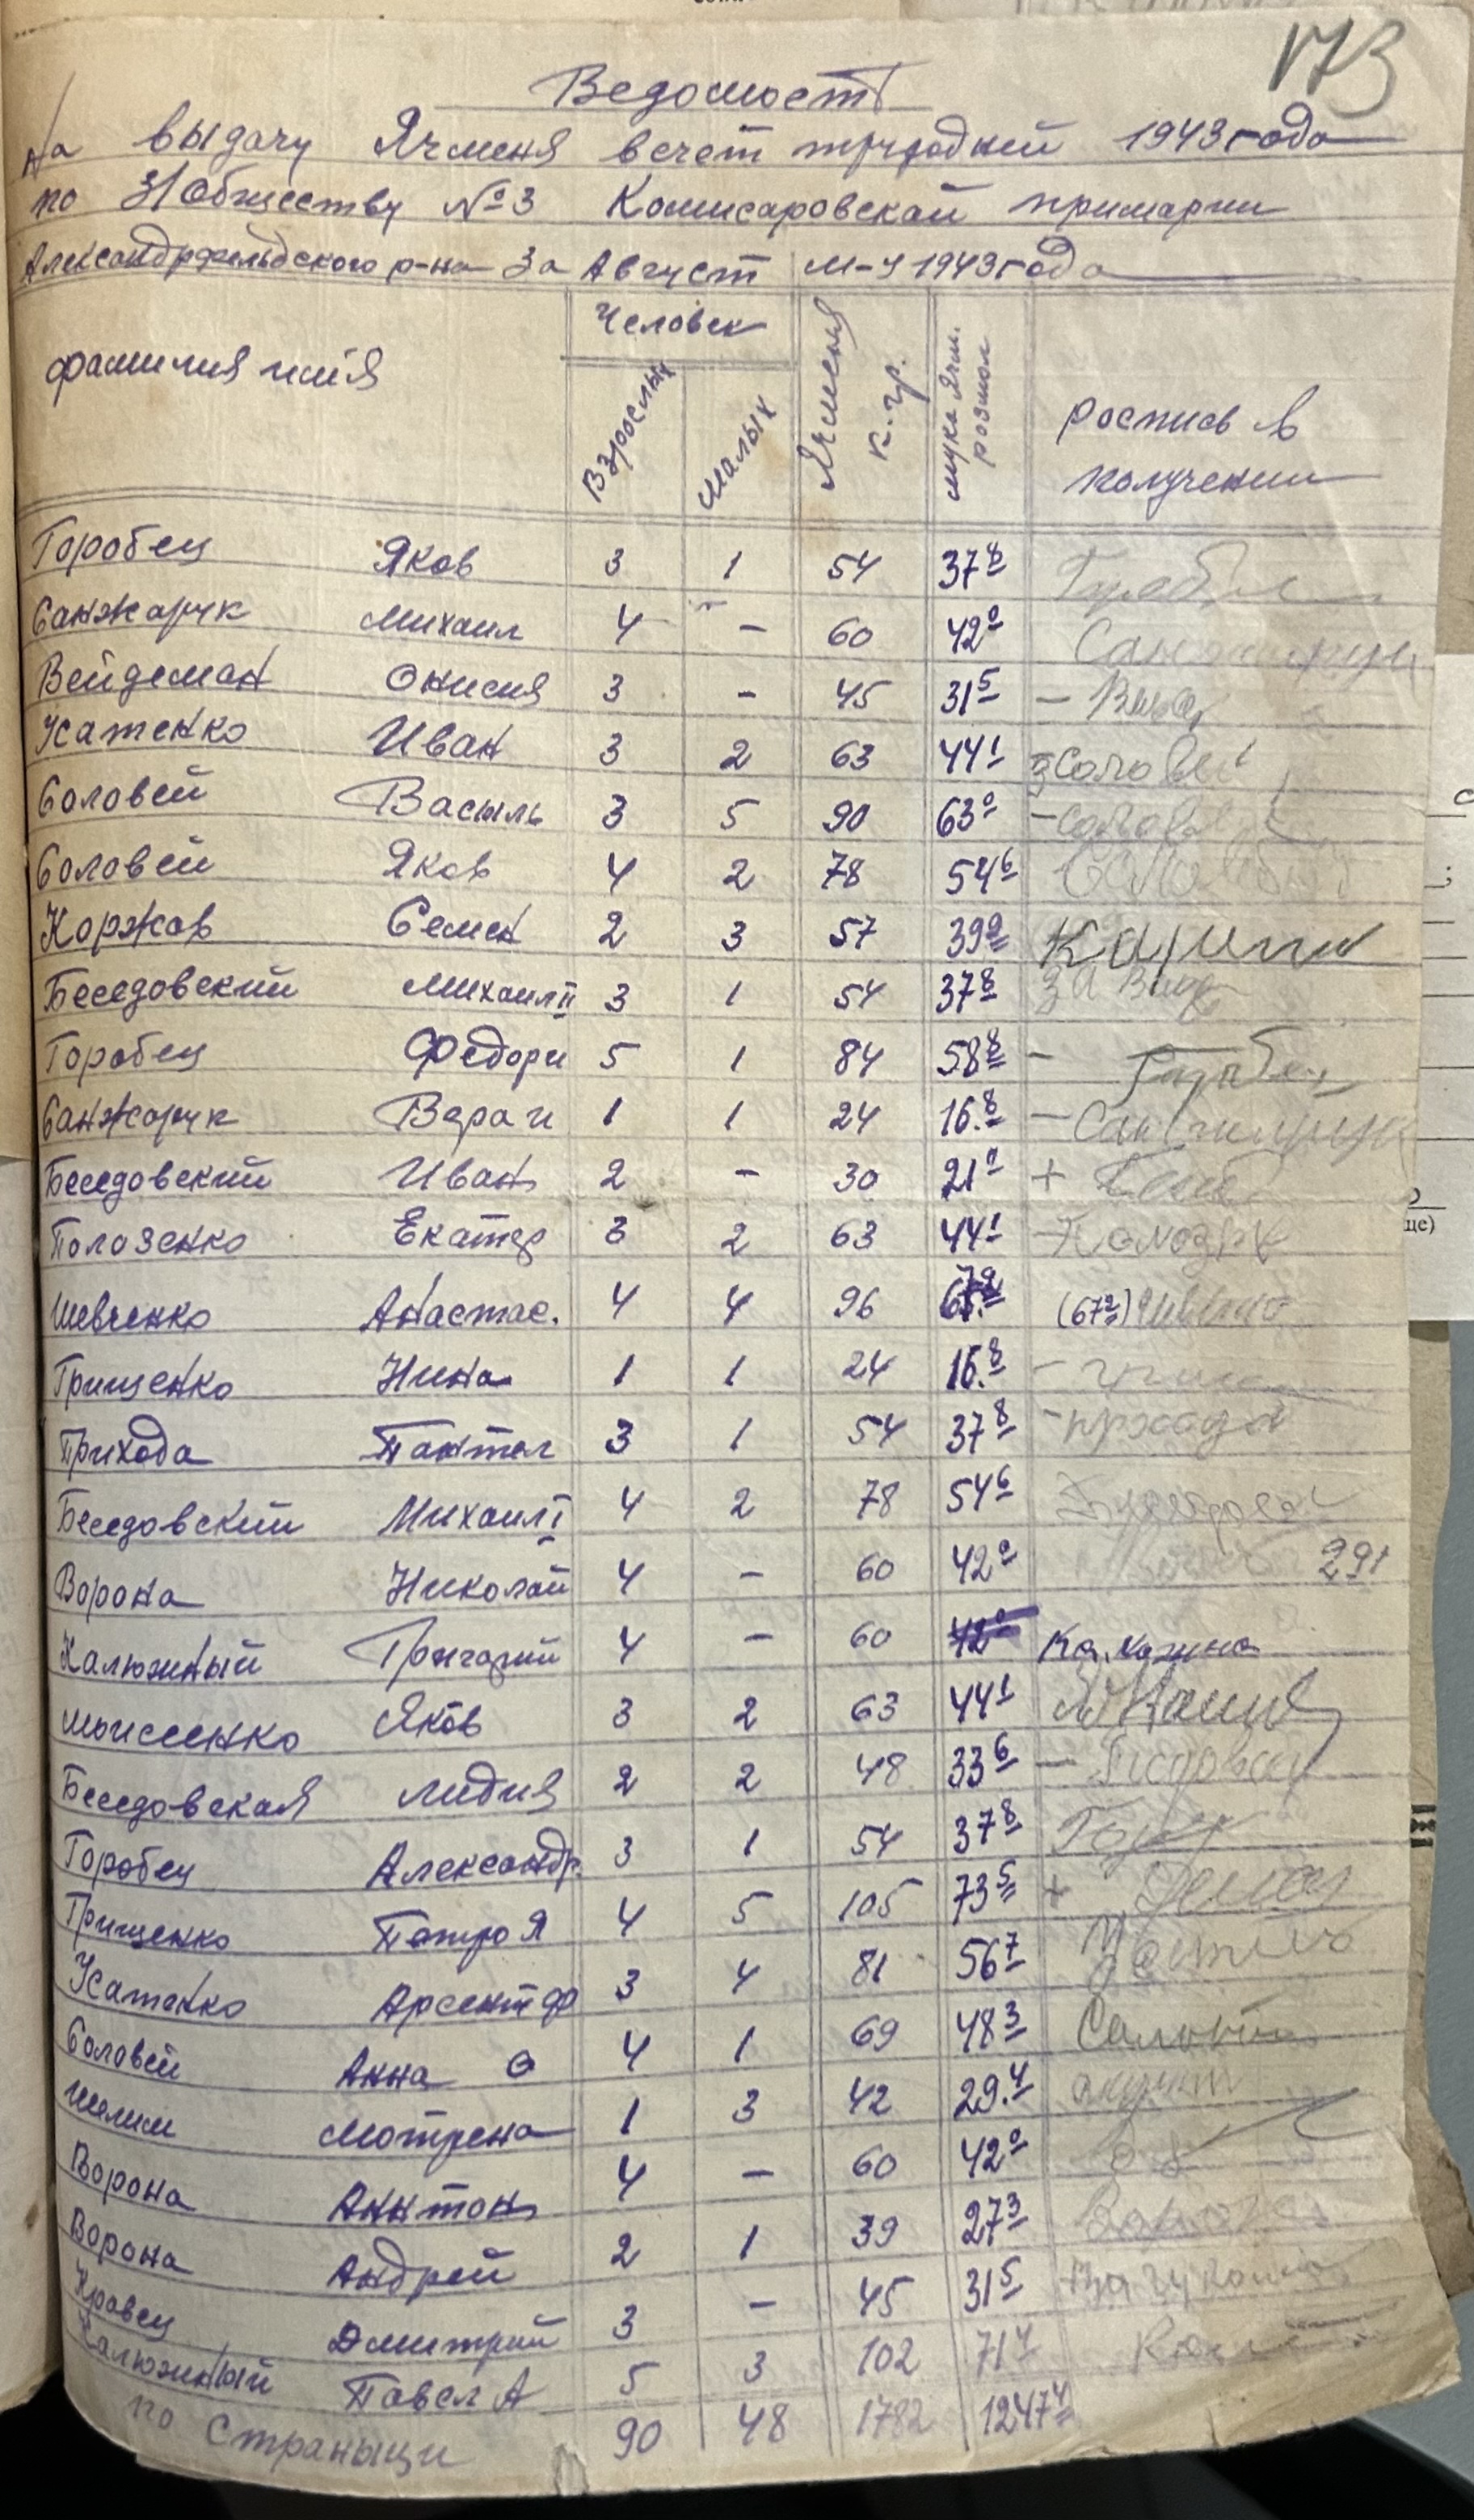 173
Ведомость
На выдачу Ячменя всчет трудодней 1943 года
по З/Обществу №3 Комисаровской примарии
Александрфельдского р-на За Август м-ц 1943 года
фамилия имя
Человек
Взрослых
малых
Ячменя к.гр.
мука Ячм. розмол
роспись в получении
Горобец Яков 3 1 54 37⁸
Санжарук Михаил 4 – 60 42⁰
Вейдеман Онисия 3 – 45 31⁵ –
Усатенко Иван 3 2 63 44¹ з Соловей
Соловей Василь 3 5 90 63⁰ – Солов
Соловей Яков 4 2 78 54⁶
Коржов Семен 2 3 57 39⁹
Беседовский Михаил II 3 1 54 37⁸ за
Горобец Федори 5 1 84 58⁸ –
Санжарук Вара и 1 1 24 16.⁸ –
Беседовский Иван 2 – 30 21⁰ +
Полозенко Екатер 3 2 63 44¹
Шевченко Анастас. 4 4 96 67.² (67²)
Грищенко Нина 1 1 24 16.⁸ –
Прихода Пантел 3 1 54 37⁸ – прхода
Беседовский Михаил I 4 2 78 54⁶
Ворона Николай 4 – 60 42⁰ 291
Калюжный Григорий 4 – 60 42⁰
Моисеенко Яков 3 2 63 44¹
Беседовская Лидия 2 2 48 33⁶ –
Горобец Александр. 3 1 54 37⁸ Гор
Грищенко Петро Я 4 5 105 73⁵ +
Усатенко Арсент Ф 3 4 81 56⁷
Соловей Анна С 4 1 69 48³
Шелим Мотрена 1 3 42 29.⁴
Ворона Антон 4 – 60 42⁰
Ворона Андрей 2 1 39 27³
Кравец Дмитрий 3 – 45 31⁵
Калюжный Павел А 5 3 102 71⁴
по Страныци 90 48 1782 1247⁴